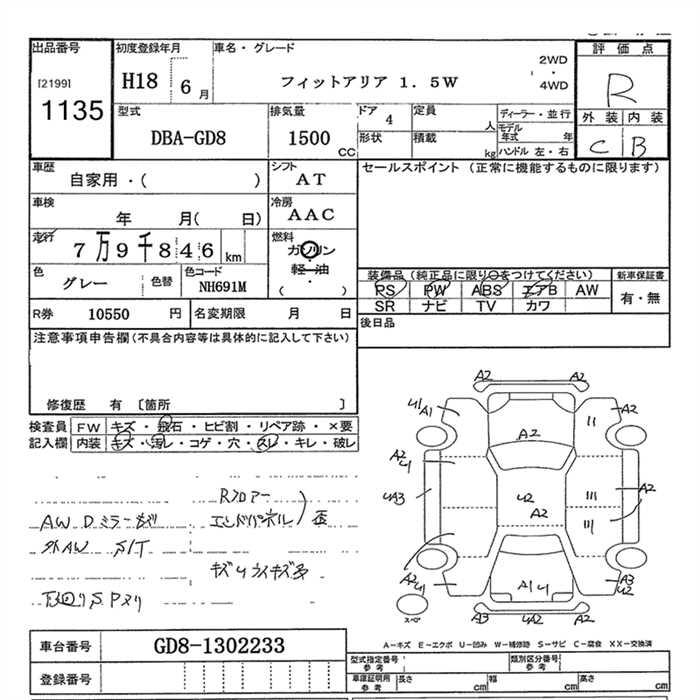 出品番号
[2199]
1135
初度登録年月
H18 6月
車名・グレード
フィットアリア 1.5W
2WD
・
4WD
評価点
R
外装 内装
C B
型式
DBA-GD8
排気量
1500 CC
ドア 4
定員 人
形状
積載 kg
ディーラー・並行
モデル年式 年
ハンドル 左・右
車歴
自家用・( )
シフト
AT
車検
年 月( 日)
冷房
AAC
走行
7万9千846 km
燃料
ガソリン
軽油
・
( )
色
グレー
色替
色コード
NH691M
R券 10550 円
名変期限 月 日
セールスポイント (正常に機能するものに限ります)
装備品(純正品に限り○をつけてください)
PS PW ABS エアB AW
SR ナビ TV カワ
新車保証書
有・無
後日品
注意事項申告欄(不具合内容等は具体的に記入して下さい)
修復歴 有 〔箇所 〕
検査員記入欄
FW キズ・飛石・ヒビ割・リペア跡・×要
内装 キズ・汚レ・コゲ・穴・スレ・キレ・破レ
Rフロアー
エンドパネル
歪
AW Dミラーキズ
外AW S/T
キズUライキズ多
A2 A2
U1 A1
A2
A2
A2 U1
UA3
U2
A2
A2
A2 U1
A1 U1
A3 U2
A3 UA2 A2
スペア
A−キズ E−エクボ U−凹み W−補修跡 S−サビ C−腐食 XX−交換済
車台番号 GD8-1302233
登録番号
型式指定番号
参考
類別区分番号
参考
車庫証明用
参考
長さ cm
幅 cm
高さ cm